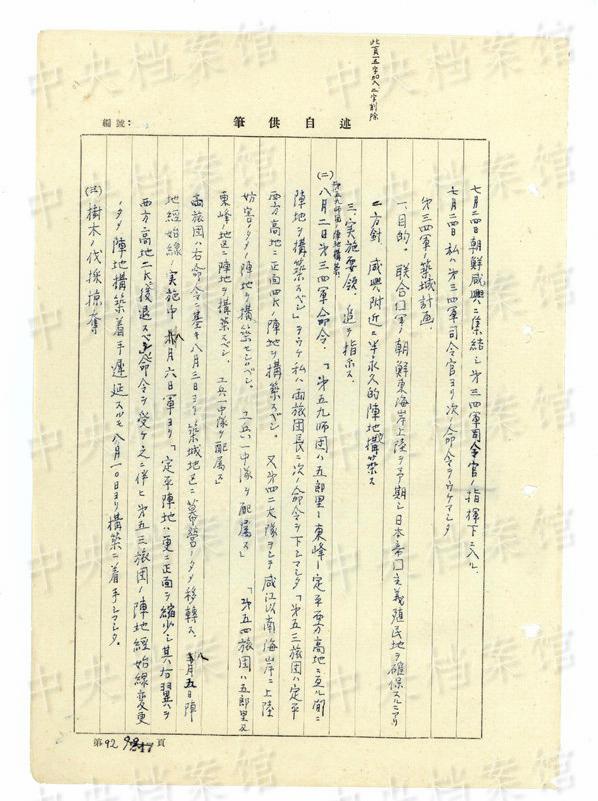 此頁一五字加入、二字削除
編號：
筆供自述
七月二四日朝鮮咸興ニ集結シ第三四軍司令官ノ指揮下ニ入ル、
七月二四日 私ハ第三四軍司令官ヨリ次ノ命令ヲウケマシタ
第三四軍ノ築城計画
一、目的、聯合国軍ノ朝鮮東海岸上陸ヲ予期シ日本帝国主義殖民地ヲ確保スルニアリ
二、方針、咸興附近ニ半永久的陣地ヲ構築ス
三、実施要領、追テ指示ス、
第五九師団ノ陣地構築
(二) 八月二日第三四軍命令、「第五九師団ハ五郎里ー東峰ー定平西方高地ニ亙ル間ニ
陣地ヲ構築スベシ」ヲウケ私ハ両旅団長ニ次ノ命令ヲ下シマシタ「第五三旅団ハ定平
西方高地ニ正面四Kノ陣地ヲ構築スベシ。又第四二大隊ヲシテ咸江以南海岸ニ上陸
妨害ノタメノ陣地ヲ構築セシムベシ。工兵一中隊ヲ配属ス」「第五四旅団ハ五郎里及
東峰地区ニ陣地ヲ構築スベシ、工兵一中隊ヲ配属ス」
両旅団ハ右命令ニ基キ八月三日ヨリ築城地区ニ幕営ノタメ移轉ス、八月五日陣
地経始線ノ実施中八月六日軍ヨリ「定平陣地ハ更ニ正面ヲ縮少シ其右翼ヲ
西方高地二K後退スベシ」ノ命令ヲ受ケ之ニ伴ヒ第五三旅団ノ陣地経始線変更
ノタメ陣地構築着手遅延スルモ八月一〇日ヨリ構築ニ着手シマシタ。
(三) 樹木ノ伐採掠奪
第92頁
中央档案馆